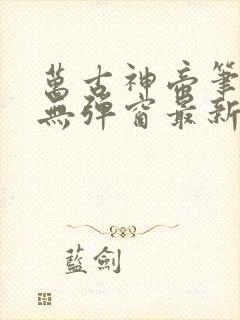 萬古神帝筆
無彈窗最新
藍劍